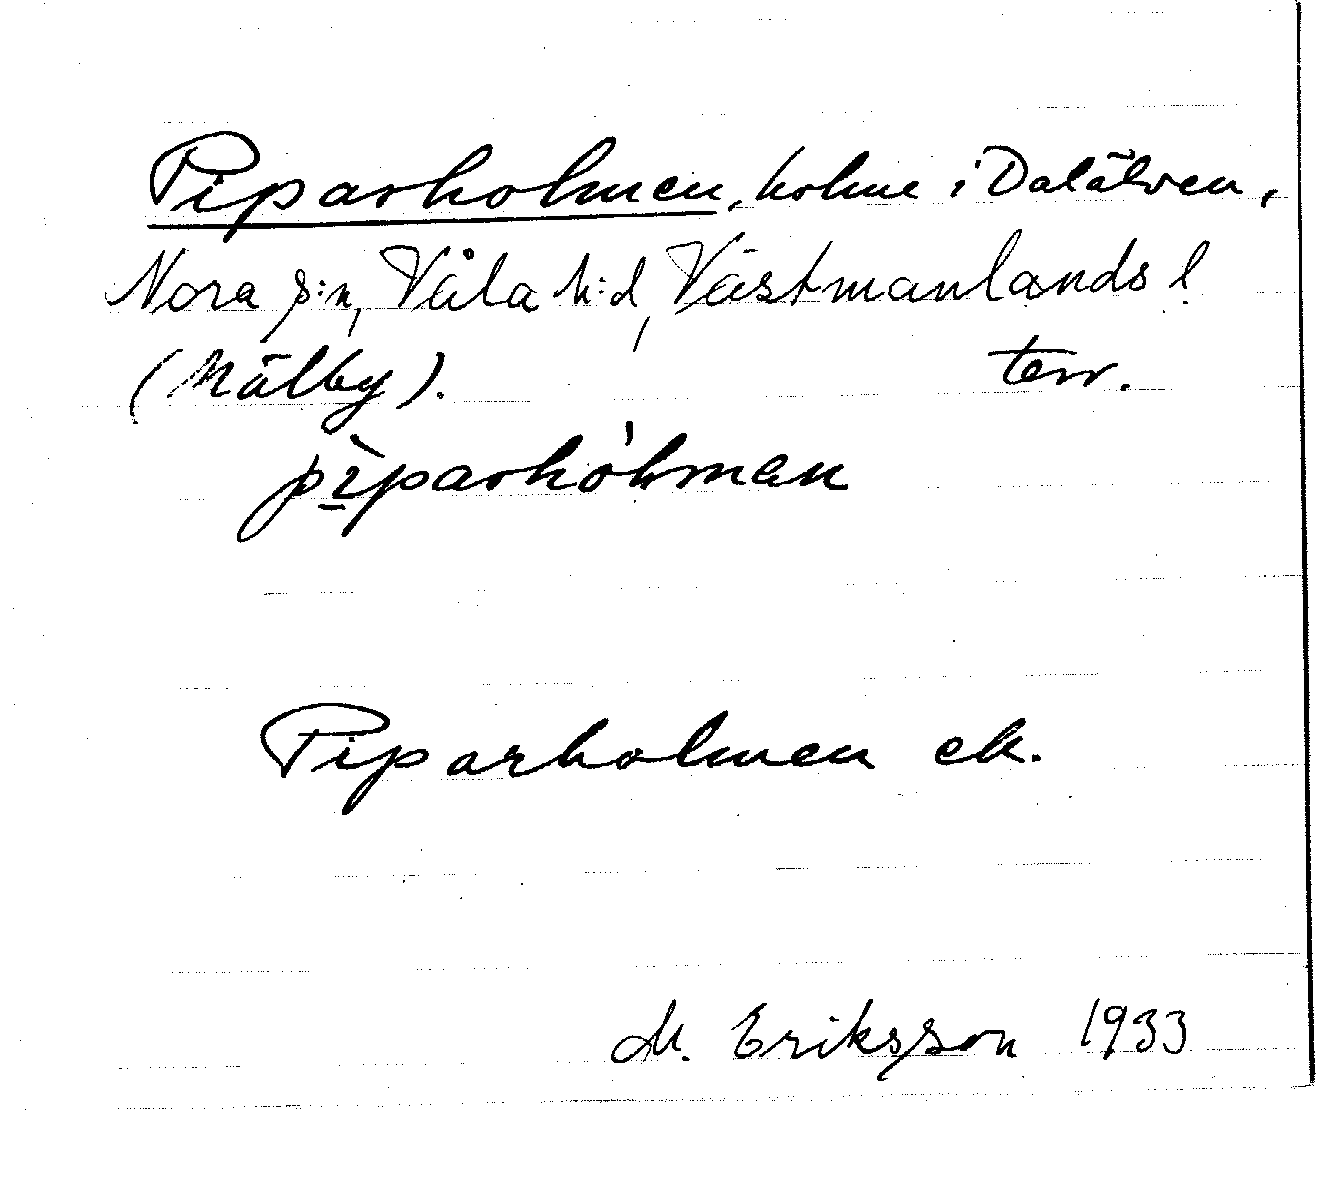 Piparholmen, holme i Dalälven,
Nora s:n, Våla h:d, Västmanlands l.
(Mälby). terr.
pìparhólman
Piparholmen ek.
M. Eriksson 1933